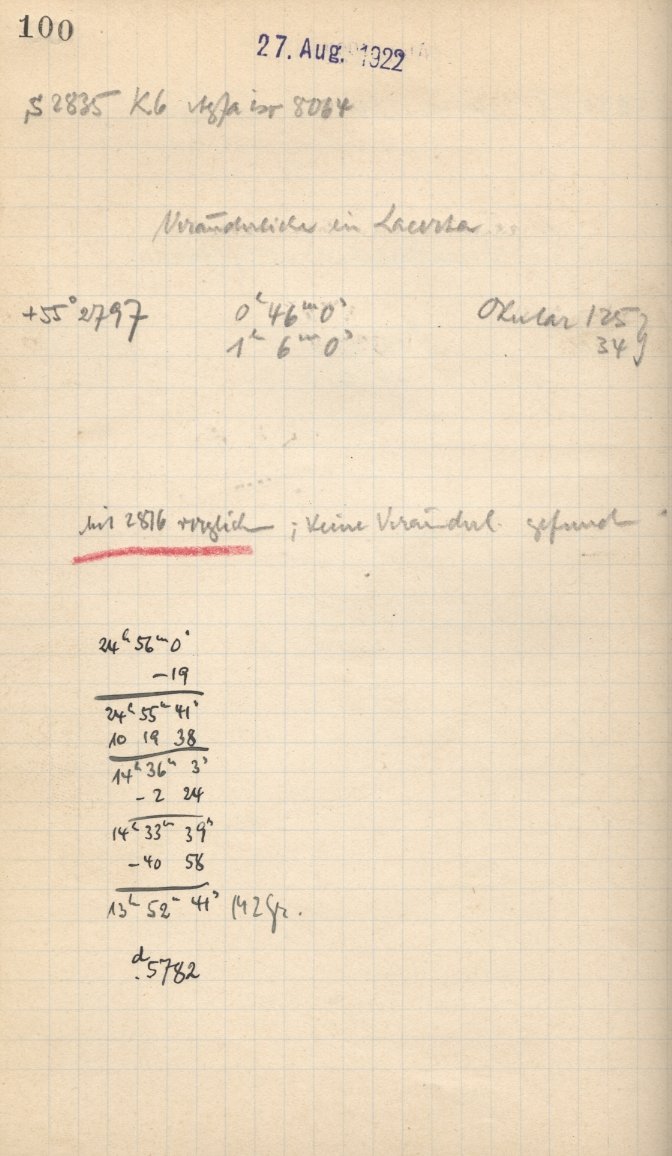 100
27. Aug. 1922
S 2835 K6 Agfa iso 8064
Veränderliche in Lacerta
+55° 2797 0ʰ 46ᵐ 0ˢ Okular 125
1ʰ 6ᵐ 0ˢ 34
mit 2816 verglich ; keine Veränderl. gefund
24ʰ 56ᵐ 0ˢ
-19
24ʰ 55ᵐ 41ˢ
10 19 38
14ʰ 36ᵐ 3ˢ
-2 24
14ʰ 33ᵐ 39ˢ
-40 58
13ʰ 52ᵐ 41ˢ M2Gr.
ᵈ.5782